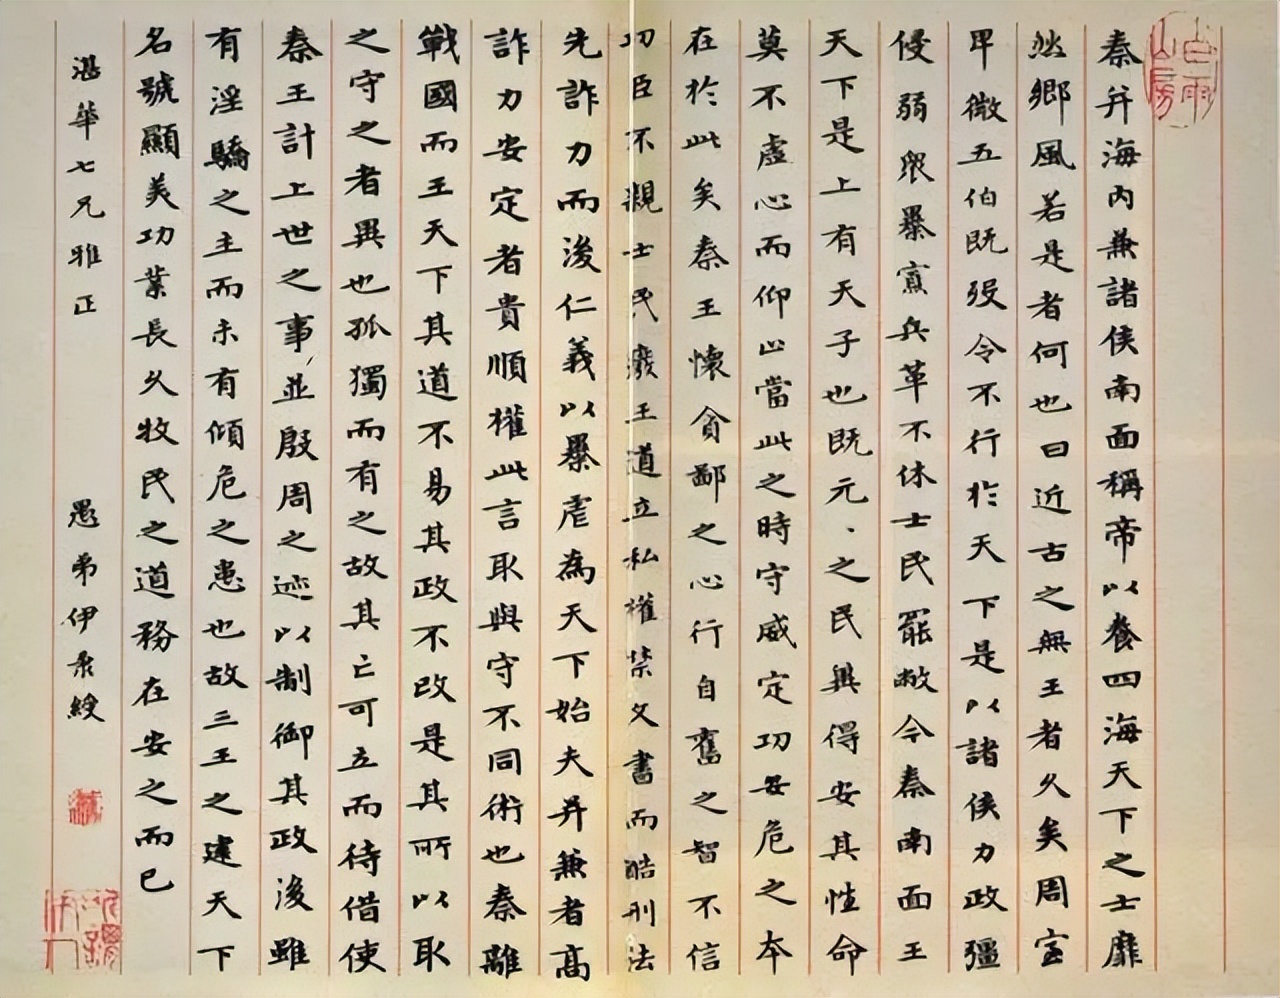 秦并海內兼諸侯南面稱帝以養四海天下之士靡
然鄉風若是者何也曰近古之無王者久矣周室
卑微五伯既歿令不行於天下是以諸侯力政彊
侵弱眾暴寡兵革不休士民罷敝今秦南面王
天下是上有天子也既元、之民冀得安其性命
莫不虛心而仰上當此之時守威定功安危之本
在於此矣秦王懷貪鄙之心行自奮之智不信
功臣不親士民廢王道立私權禁文書而酷刑法
先詐力而後仁義以暴虐為天下始夫并兼者高
詐力安定者貴順權此言取與守不同術也秦離
戰國而王天下其道不易其政不改是其所以取
之守之者異也孤獨而有之故其亡可立而待借使
秦王計上世之事並殷周之迹以制御其政後雖
有淫驕之主而未有傾危之患也故三王之建天下
名號顯美功業長久牧民之道務在安之而已
湛華七兄雅正
愚弟伊秉綬